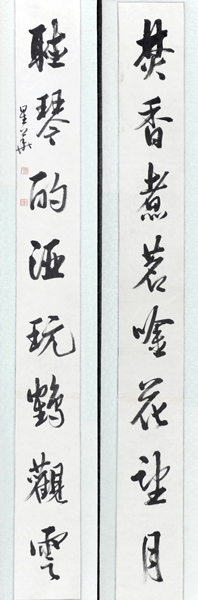 焚香煮茗唫花望月
聽琴酌酒玩鶴觀雲
星華